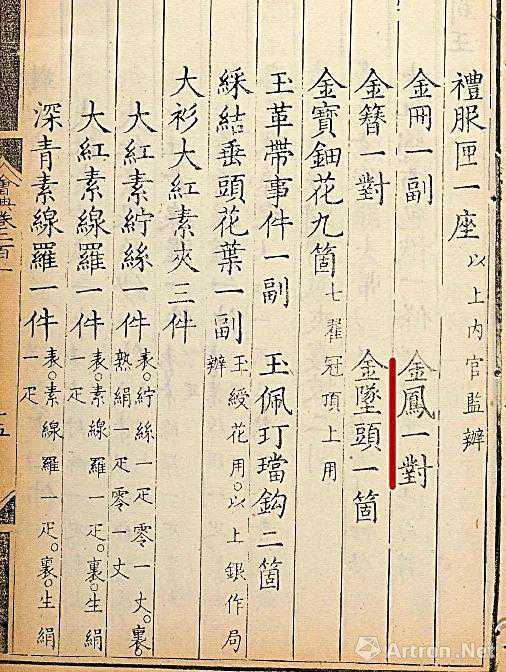 禮服匣一座以上内官監辦
金冊一副 金鳳一對
金簪一對 金墜頭一箇
金寶鈿花九箇七翟冠頂上用
玉革帶事件一副 玉佩玎璫鈎二箇
綵結垂頭花葉一副玉綬花用。以上銀作局辦
大衫大紅素夾三件
大紅素紵絲一件表。紵絲一疋零一丈。裏。熟絹一疋零一丈
大紅素線羅一件表。素線羅一疋。裏。生絹一疋
深青素線羅一件表。素線羅一疋。裏。生絹一疋
會典卷二百一
十五
Artron.Net